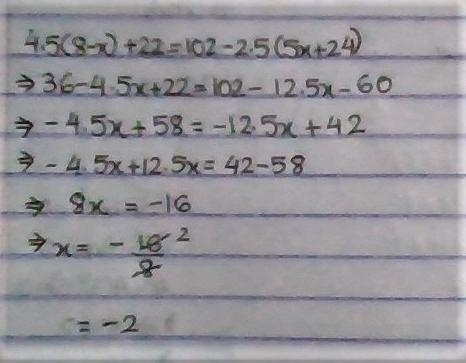 4.5(8-x)+22=102-2.5(5x+24)
⇒ 36-4.5x+22=102-12.5x-60
⇒ -4.5x+58=-12.5x+42
⇒ -4.5x+12.5x=42-58
⇒ 8x = -16
⇒ x = - 16/8 2
= -2